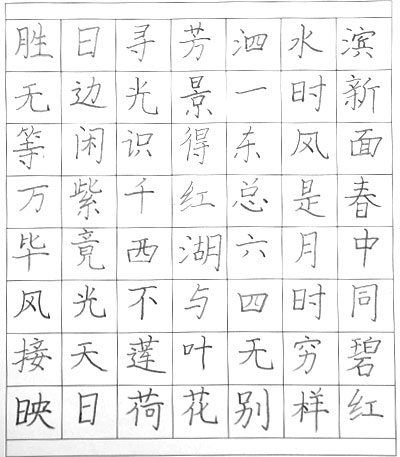 胜日寻芳泗水滨
无边光景一时新
等闲识得东风面
万紫千红总是春
毕竟西湖六月中
风光不与四时同
接天莲叶无穷碧
映日荷花别样红